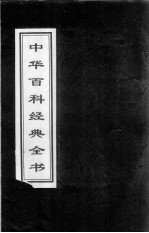 中华百科经典全书